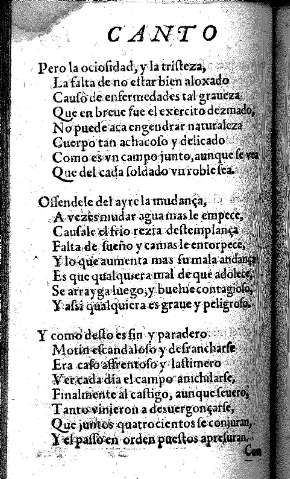 CANTO
Pero la ociosidad, y la tristeza,
La falta de no estar bien aloxado
Causò de enfermedades tal graueza
Que en breue fue el exercito dezmado,
No puede aca engendrar naturaleza
Cuerpo tan achacoso y delicado
Como es vn campo junto, aunque se vea
Que del cada soldado vn roble sea.
Offendele del ayre la mudança,
A vezes mudar agua mas le empece,
Causale el frio rezia destemplança
Falta de sueño y camas le entorpece,
Y lo que aumenta mas su mala andança
Es que qualquiera mal de que adolece,
Se arrayga luego, y buelue contagioso,
Y assi qualquiera es graue y peligroso.
Y como desto es fin y paradero
Motin escandaloso y desrancharse
Era caso afrentoso y lastimero
Ver cada dia el campo anichilarse,
Finalmente al castigo, aunque seuero,
Tanto vinieron a desuergonçarse,
Que juntos quatrocientos se conjuran,
Y el passo en orden puestos apresuran.
Con